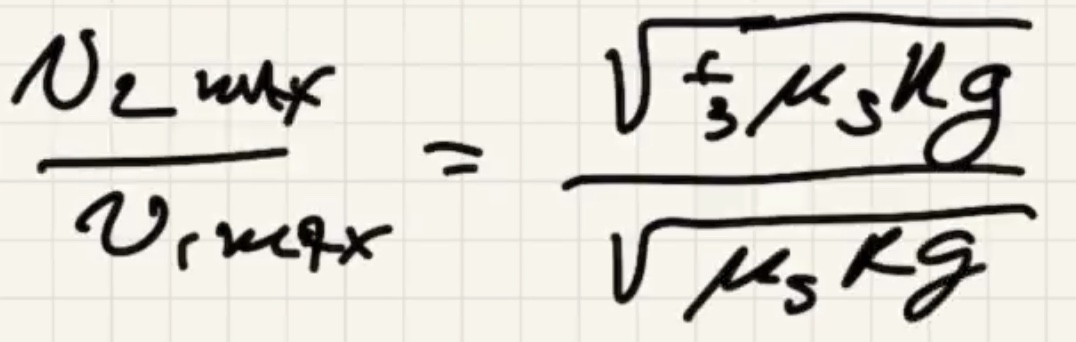 v₂ max / v₁ max = √(1/3 μₛRg) / √(μₛRg)